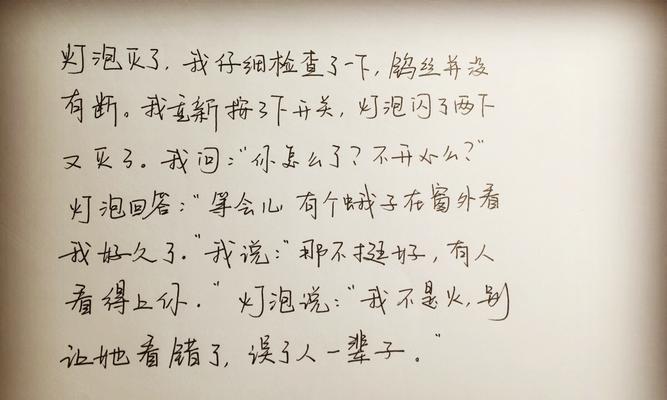 灯泡灭了，我仔细检查了一下，钨丝并没
有断。我重新按了下开关，灯泡闪了两下
又灭了。我问："你怎么了？不开心么？"
灯泡回答："等会儿 有个蛾子在窗外看
我好久了。"我说："那不挺好，有人
看得上你。" 灯泡说："我不是火，别
让她看错了，误了人一辈子。"